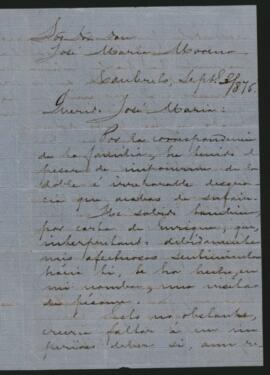 Sor Dn Don
José María Moreno
Londres, Septbe /876.
Querido José María:
Por la correspondencia
de la familia, he tenido el
pesar de imponerme de la
doble é irreparable desgra-
cia que acabas de sufrir.
He sabido tambien,
por carta de Enrique, que,
interpretando debidamente
mis afectuosos sentimientos
hácia tí, te ha hecho, en
mi nombre, una visita
de pésame.
Esto no obstante,
creeria faltar á un im-
perioso deber si, aun re